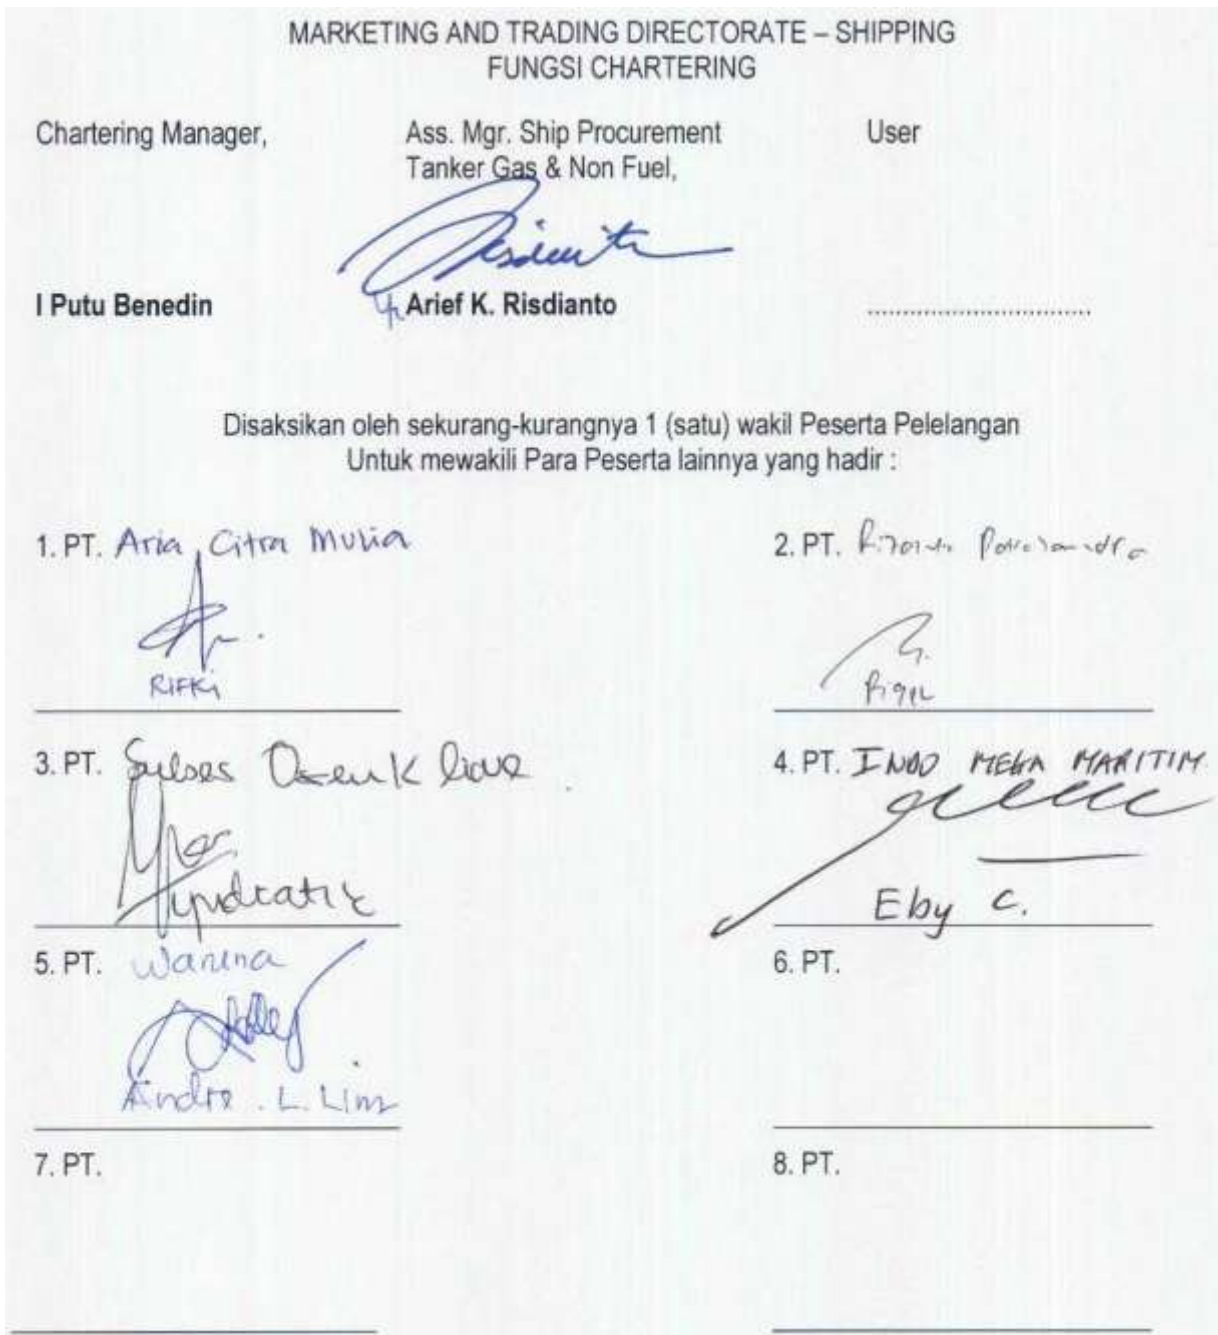 MARKETING AND TRADING DIRECTORATE – SHIPPING
FUNGSI CHARTERING
Chartering Manager, Ass. Mgr. Ship Procurement User
Tanker Gas & Non Fuel,
I Putu Benedin Arief K. Risdianto ..............................
Disaksikan oleh sekurang-kurangnya 1 (satu) wakil Peserta Pelelangan
Untuk mewakili Para Peserta lainnya yang hadir :
1. PT. Aria Citra Mulia 2. PT.
RIFKi
3. PT. Sukses Osean K line 4. PT. INDO MEGA MARITIM
Eby C.
5. PT. Waruna 6. PT.
Andre . L. Lim
7. PT. 8. PT.